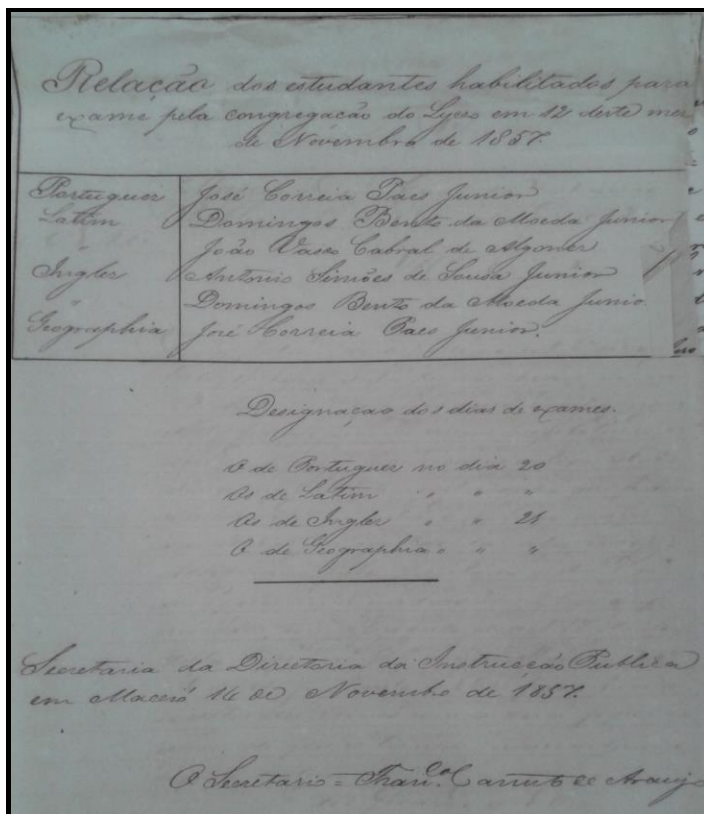 Relação dos estudantes habilitados para
exame pela congregação do Lyceo em 12 deste mez
de Novembro de 1857.
Portuguez José Correia Paes Junior
Latim Domingos Bento da Moeda Junior
" João Vasco Cabral de Algonez
Inglez Antonio Simões de Sousa Junior
" Domingos Bento da Moeda Junio
Geographia José Correia Paes Junior.
Designaçao dos dias de exames.
O de Portuguez no dia 20
Os de Latim " " "
Os de Inglez " " 21
O de Geographia " " "
Secretaria da Directoria da Instrucção Publica
em Maceió 14 de Novembro de 1857.
O Secretario = Fran.co Canuto de Araujo